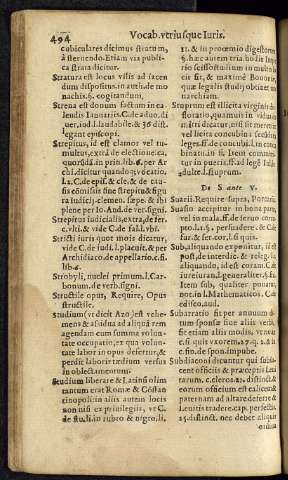 494 Vocab. vtriusque Iuris.
cubiculares dicimus stratum,
à sternendo. Etiam via publi-
ca strata dicitur.
Stratura est locus vilis ad iacen
dum dispositus, in auth. de mo
nachis. §. cogitandum,
Strena est donum factum in ca-
lendis Ianuariis. C. de
uer, iod l. laudabile. & 36 dist.
legant episcopi.
Strepitus, id est clamor vel tu-
multus, extra de electione. ca.
quorundā. in prin. lib. 6. per Ar
chi. dicitur quandoque
la C. de epis. & cle. & de cau-
sis sine strepitu & figu
ra iudicij. clemen. sæpe. & ibi
plene per Io. And. de ver. signi.
Strepitus iudicialis, extra, de
c. vlti. & vide C. de fal. l. vbi.
Stricti iuris quot modis dicatur,
vide C. de iudi. l. placuit. & per
Archidiaco. de appellario. c. si.
lib. 6.
Strobyli, nuclei primum. l. Car-
bonum. de verb. signi.
Structile opus, Require, Opus
structile.
Studium (vt dicit Azo) est vehe-
mens & assidua ad aliquā rem
agendam cum summa volun-
tate occupatio, ex qua volun-
tate labor in opus defertur, &
perdit laboris tædium versus
in oblectamentum.
Studium liberale & Latinū olim
tantum erat Romæ & Cōstan
tinopolitani aliis autem locis
non nisi ex privilegiis, vt C.
de stu. li. in rubro & nigro. li,
11. & in proœmio digestorum
§. hæc autem tria. hodie
rio scissostudium in multis
cit sit, & maximè Bononiæ,
quæ legalis studij obtinet
narchiam.
Stuprum est illicita virginis de-
floratio, quamuis in viduam
matura dicatur, nisi se meretri
vel licita concubina: secundum
leges. ff. de concubi. l. in concu
binatum §. Item committi-
tur in puerū. ff. ad legē Iuli.
adulte. l. stuprum.
De S ante V.
Suarii. Require supra, Porcarii.
Suasio accipitur in bona parte,
vel in mala. ff. de seruo corru-
pto. l. 1. §. persuadere. & C. de
fur. & ser. cor. l. si quis.
Sub, aliquando exponitur, id est
post, de interdic. & releg. l.
aliquando, id est coram. C. de
iureiuran. l. generaliter. §.
Item sub, qualiter ponatur,
not. in l. Mathematicos. C. de
edifica. aud.
Subarratio fit per annulum di-
tum sponsæ siue aliis verbis,
fit etiam aliis modis, vt notat
c. si quis vxorem. 27. q. 2. & in
c. fin. de spon. impube.
Subdiaconi dicuntur qui subia-
cent officiis & præceptis Leui-
tarum. c. cleros. 21. distinct. &
eorum officium est calicem &
patenam ad altare deferre &
Leuitis tradere. cap. perfectis.
25. distinct. nec debet ante